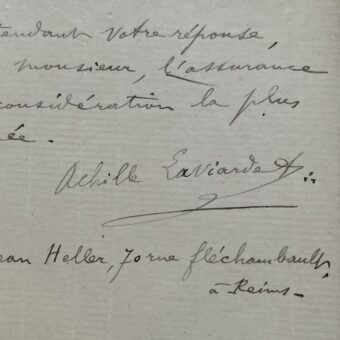 tendant votre réponse,
monsieur, l'assurance
considération la plus
ée.
Achille Laviarde
ean Heller, 70 rue fléchambault,
à Reims_